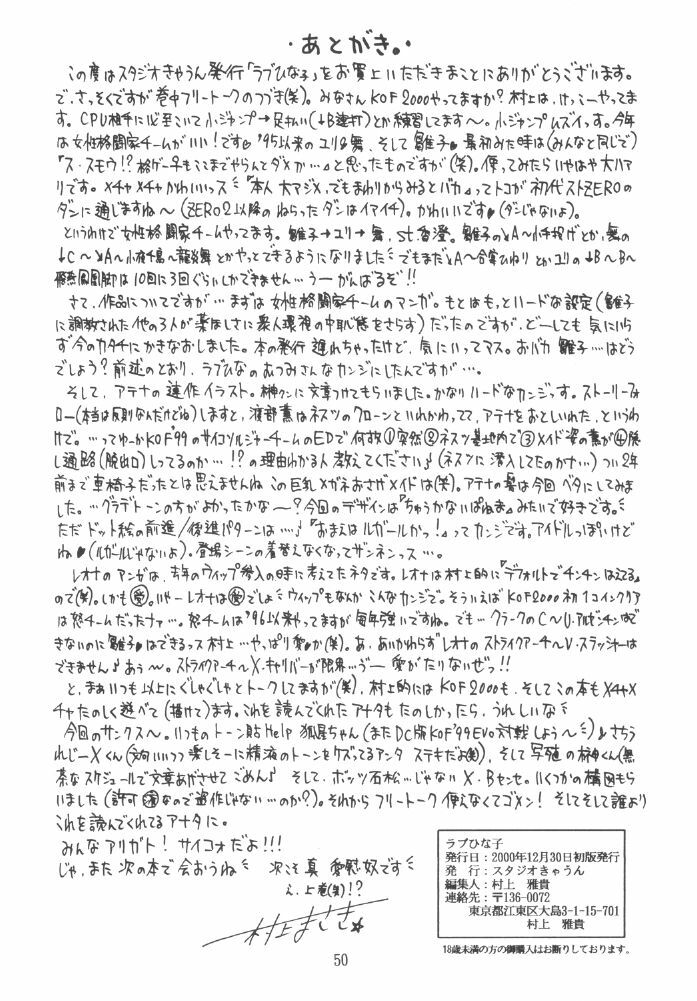 ・あとがき。・
この度はスタジオきゃうん発行「ラブひな子」をお買上いただきまことにありがとうございます。
で、さっそくですが巻中フリートークのつづき(笑)。みなさんKOF2000やってますか?村上は、けっこーやってま
す。CPU相手に 小ジャンプ とか練習してます〜。小ジャンプムズイっす。今年
は女性格闘家チームがいい!です♥'95以来のユリ&舞、そして雛子♥最初みた時は(みんなと同じで)
『ス・スモウ!?格ゲーもここまでやらんとダメか…』と思ったものですが(笑)。使ってみたらいやはや大ハア
リです。メチャメチャかわいいっス 『本人大マジメ、でもまわりからみるとバカ』ってトコが初代ストZEROの
ダンに通じますね〜(ZERO2以降のねらったダンはイマイチ)。かわいいです♥(ダンじゃないよ)。
というわけで女性格闘家チームやってます。雛子→ユリ→舞、st.香澄。雛子の A〜小手投げとか、舞の
とかやっとできるようになりました でもまだ とかユリの↓B〜B〜
は10回に3回ぐらいしかできません…うーがんばるぞ!!
さて、作品についてですが…まずは女性格闘家チームのマンガ。
だったのですが、どーしても気にいら
ず今のカタチにかきなおしました。本の発行遅れちゃったけど、気にいってマス。おバカ雛子…はどう
でしょう?前述のとおり、ラブひなのあつみさんなカンジにしたんですが…。
そして、アテナの連作イラスト。榊クンに文章つけてもらいました。かなりハードなカンジっす。ストーリーフォ
ロー(本当は反則なんだけどね)しますと、渡部薫はネスツのクローンといれかわってて、 というわ
けで。…ってゆーかKOF'99のサイコソルジャーチームのEDで何故①突然②ネスツ基地内で③メイド姿の薫が④脱
し通路(脱出口)しってるのか…!?の理由わかる人教えてください♪(ネスツに潜入してたのかナ…)つい2年
前まで車椅子だったとは思えませんね (笑)。アテナの髪は今回ベタにしてみま
した。…グラデトーンの方がよかったかな〜?今回のデザインは『ちゃうかないぱねま』みたいで好きです。
ただドット絵の前進/後進パターンは…♪『おまえはルガールかっ!』ってカンジです。アイドルっぽいけど
ね♥(ルガールじゃないよ)。登場シーンの着替えなくなってザンネンっス…。
レオナのマンガは、去年のウィップ参入の時に考えてたネタです。レオナは村上的に『デフォルトでチンチンはえてる』
ので(笑)。しかも 。いやーレオナは でしょ ウィップもなんかこんなカンジで。そういえばKOF2000初1コインクリア
は怒チームだったナァ…。怒チームは'96以来やってますが毎年強いですね。でも…クラークのC〜U.アルゼンチンはで
きないのに雛子♥はできるっス村上…やっぱり愛♥か(笑)。あ、あいかわらずレオナのストライクアーチ〜V・スラッシャーは
できません♪あう〜。ストライクアーチ〜X.キャリバーが限界…うー愛がたりないぜっ!!
と、まあいつも以上にぐしゃぐしゃとトークしてますが(笑)、村上的にはKOF2000も、そしてこの本もメチャメ
チャたのしく遊べて(描けて)ます。これを読んでくれたアナタもたのしかったら、うれしいな
今回のサンクス〜。いつものトーン貼Help 狐鳥ちゃん(またDC版KOF'99 Evo対戦しよう〜)♪さちう
れじーXくん(文句いいつつ楽しそーに精液のトーンをケズッてるアンタ ステキだよ(笑))、そして写植の榊くん(無
茶なスケジュールで文章あげさせてごめん♪ そして、ガッツ石松…じゃないX・Bセンセ。いくつかの構図もら
いました(許可 なので盗作じゃない…のか?)。それからフリートーク使えなくてゴメン!そしてそして誰より
これを読んでくれてるアナタに。
みんなアリガト!サイコォだよ!!!
じゃ、また次の本で会おうね 次こそ真 です
え、上巻(笑)!?
村上まさき☆
ラブひな子
発行日:2000年12月30日初版発行
発 行:スタジオきゃうん
編集人:村上 雅貴
連絡先:〒136-0072
東京都江東区大島3-1-15-701
村上 雅貴
18歳未満の方の御購入はお断りしております。
50